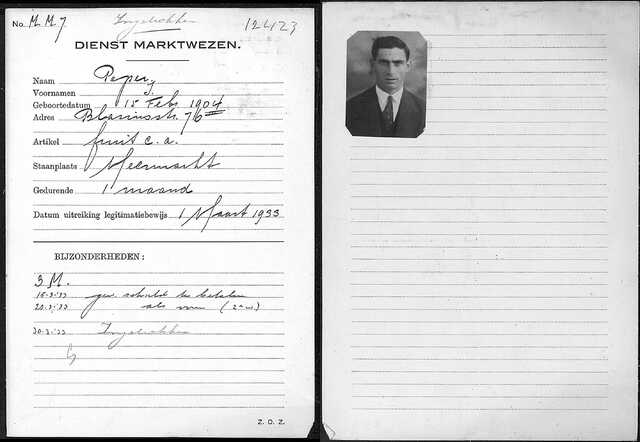 No. M.M.7 Ingetrokken 12423
DIENST MARKTWEZEN.
Naam Peper
Voornamen J.
Geboortedatum 15 Feb. 1904
Adres Blasiusstr. 76 III
Artikel fruit e.a.
Staanplaats Meermarkt
Gedurende 1 maand
Datum uitreiking legitimatiebewijs 1 Maart 1933
BIJZONDERHEDEN:
3 M.
15-3-33 gew. schuld te betalen
20-3-33 als voren (2e w)
30-3-33 Ingetrokken
Z. O. Z.